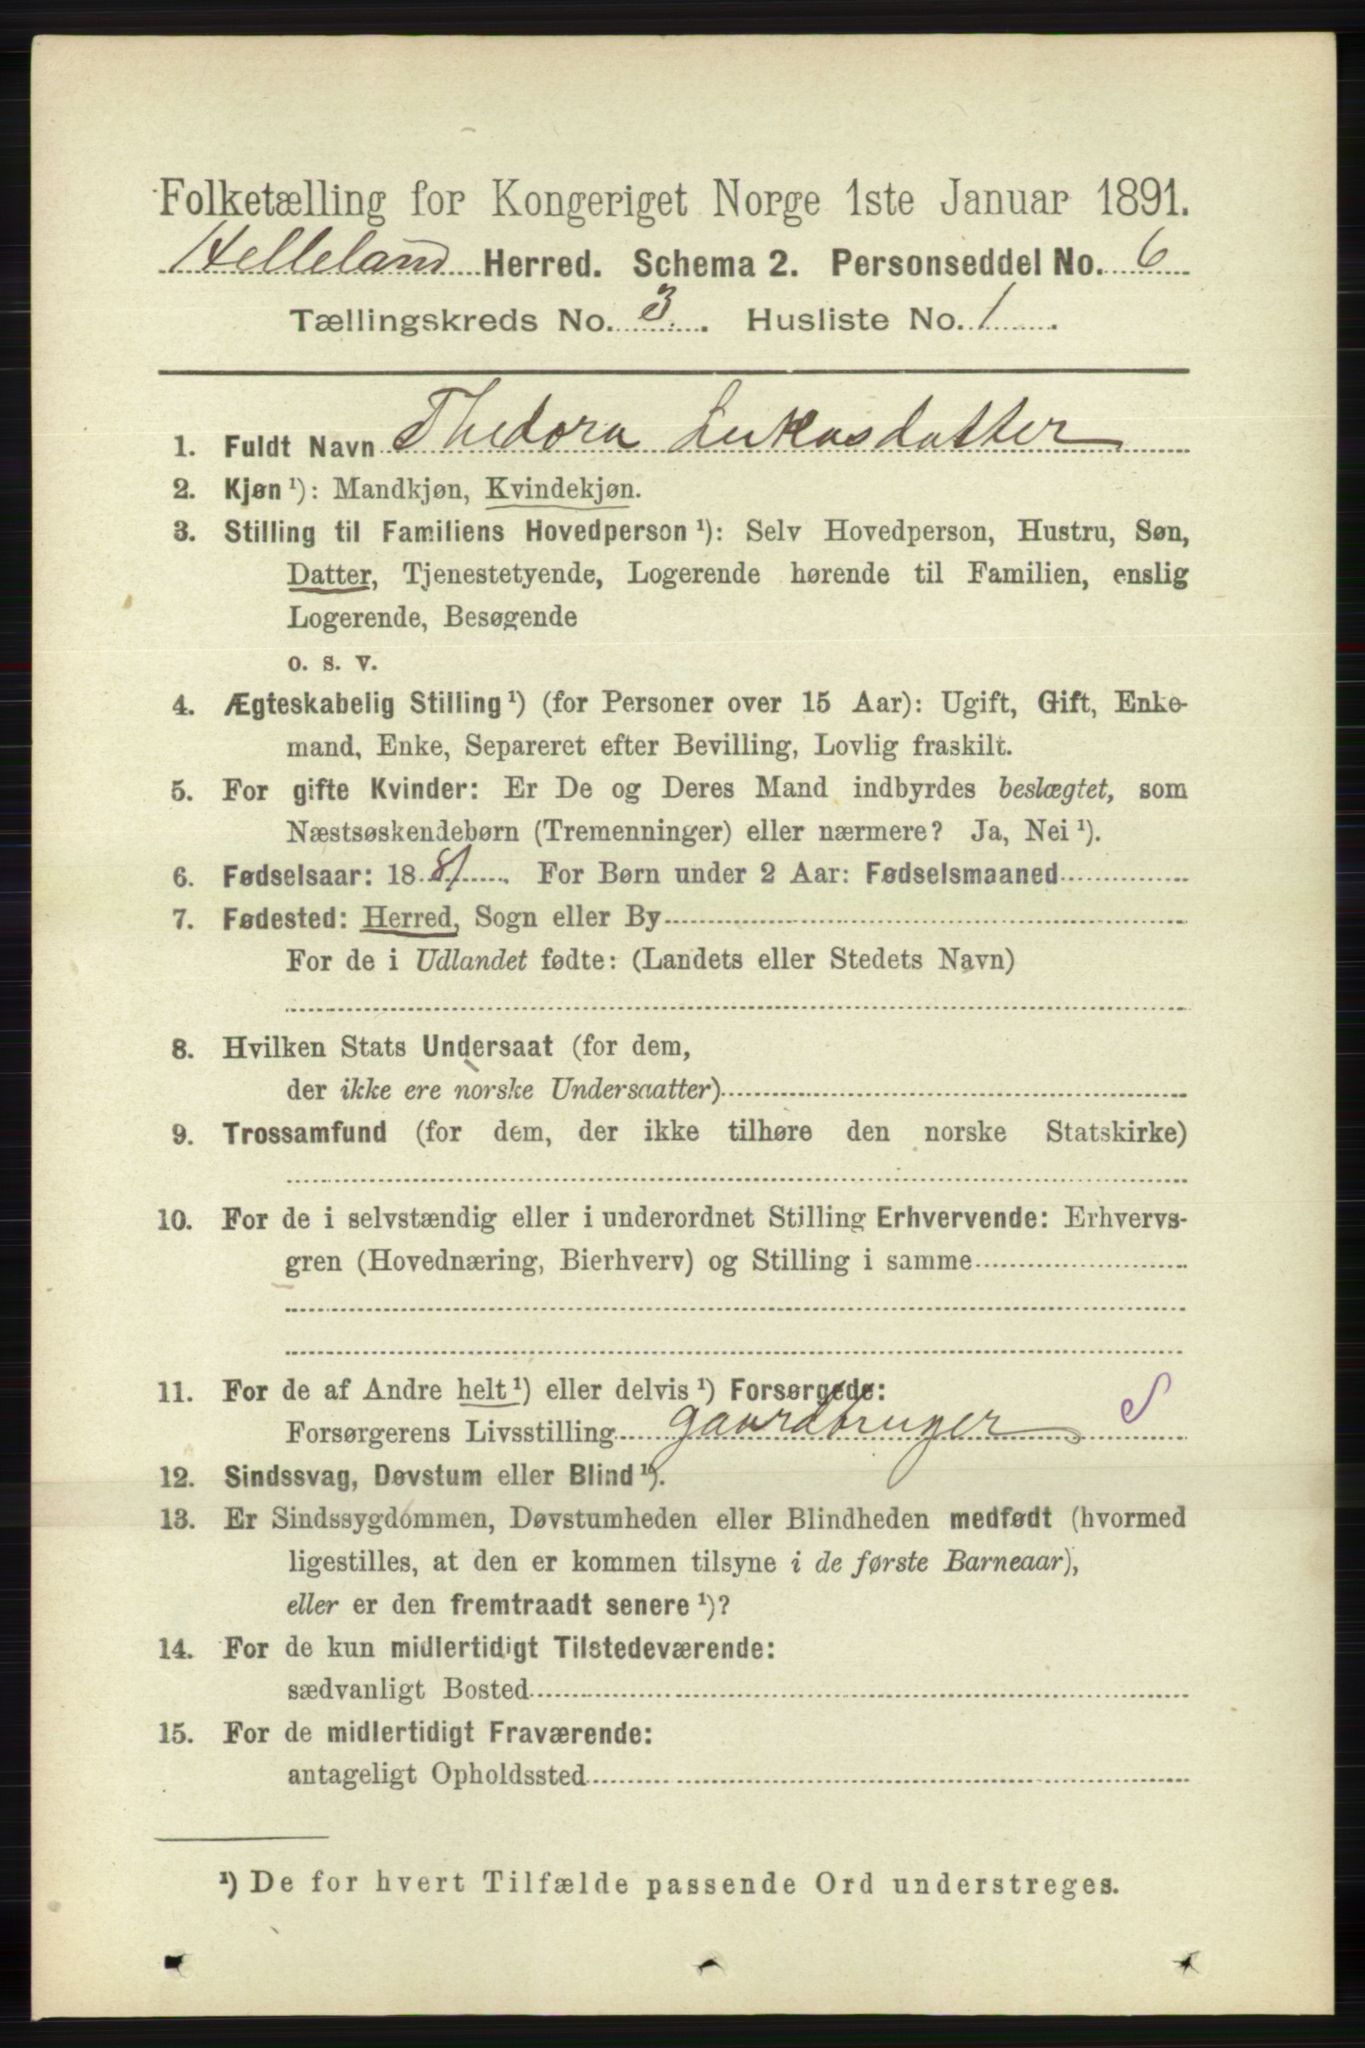 Folketælling for Kongeriget Norge 1ste Januar 1891.
Helleland Herred. Schema 2. Personseddel No. 6
Tællingskreds No. 3. Husliste No. 1.
1. Fuldt Navn Thedora Lukasdatter
2. Kjøn ¹): Mandkjøn, Kvindekjøn.
3. Stilling til Familiens Hovedperson ¹): Selv Hovedperson, Hustru, Søn,
Datter, Tjenestetyende, Logerende hørende til Familien, enslig
Logerende, Besøgende
o. s. v.
4. Ægteskabelig Stilling ¹) (for Personer over 15 Aar): Ugift, Gift, Enke-
mand, Enke, Separeret efter Bevilling, Lovlig fraskilt.
5. For gifte Kvinder: Er De og Deres Mand indbyrdes beslægtet, som
Næstsøskendebørn (Tremenninger) eller nærmere? Ja, Nei ¹).
6. Fødselsaar: 1881. For Børn under 2 Aar: Fødselsmaaned
7. Fødested: Herred, Sogn eller By
For de i Udlandet fødte: (Landets eller Stedets Navn)
8. Hvilken Stats Undersaat (for dem,
der ikke ere norske Undersaatter)
9. Trossamfund (for dem, der ikke tilhøre den norske Statskirke)
10. For de i selvstændig eller i underordnet Stilling Erhvervende: Erhvervs-
gren (Hovednæring, Bierhverv) og Stilling i samme
11. For de af Andre helt ¹) eller delvis ¹) Forsørgede:
Forsørgerens Livsstilling gaardbruger S
12. Sindssvag, Døvstum eller Blind ¹).
13. Er Sindssygdommen, Døvstumheden eller Blindheden medfødt (hvormed
ligestilles, at den er kommen tilsyne i de første Barneaar),
eller er den fremtraadt senere ¹)?
14. For de kun midlertidigt Tilstedeværende:
sædvanligt Bosted
15. For de midlertidigt Fraværende:
antageligt Opholdssted
¹) De for hvert Tilfælde passende Ord understreges.